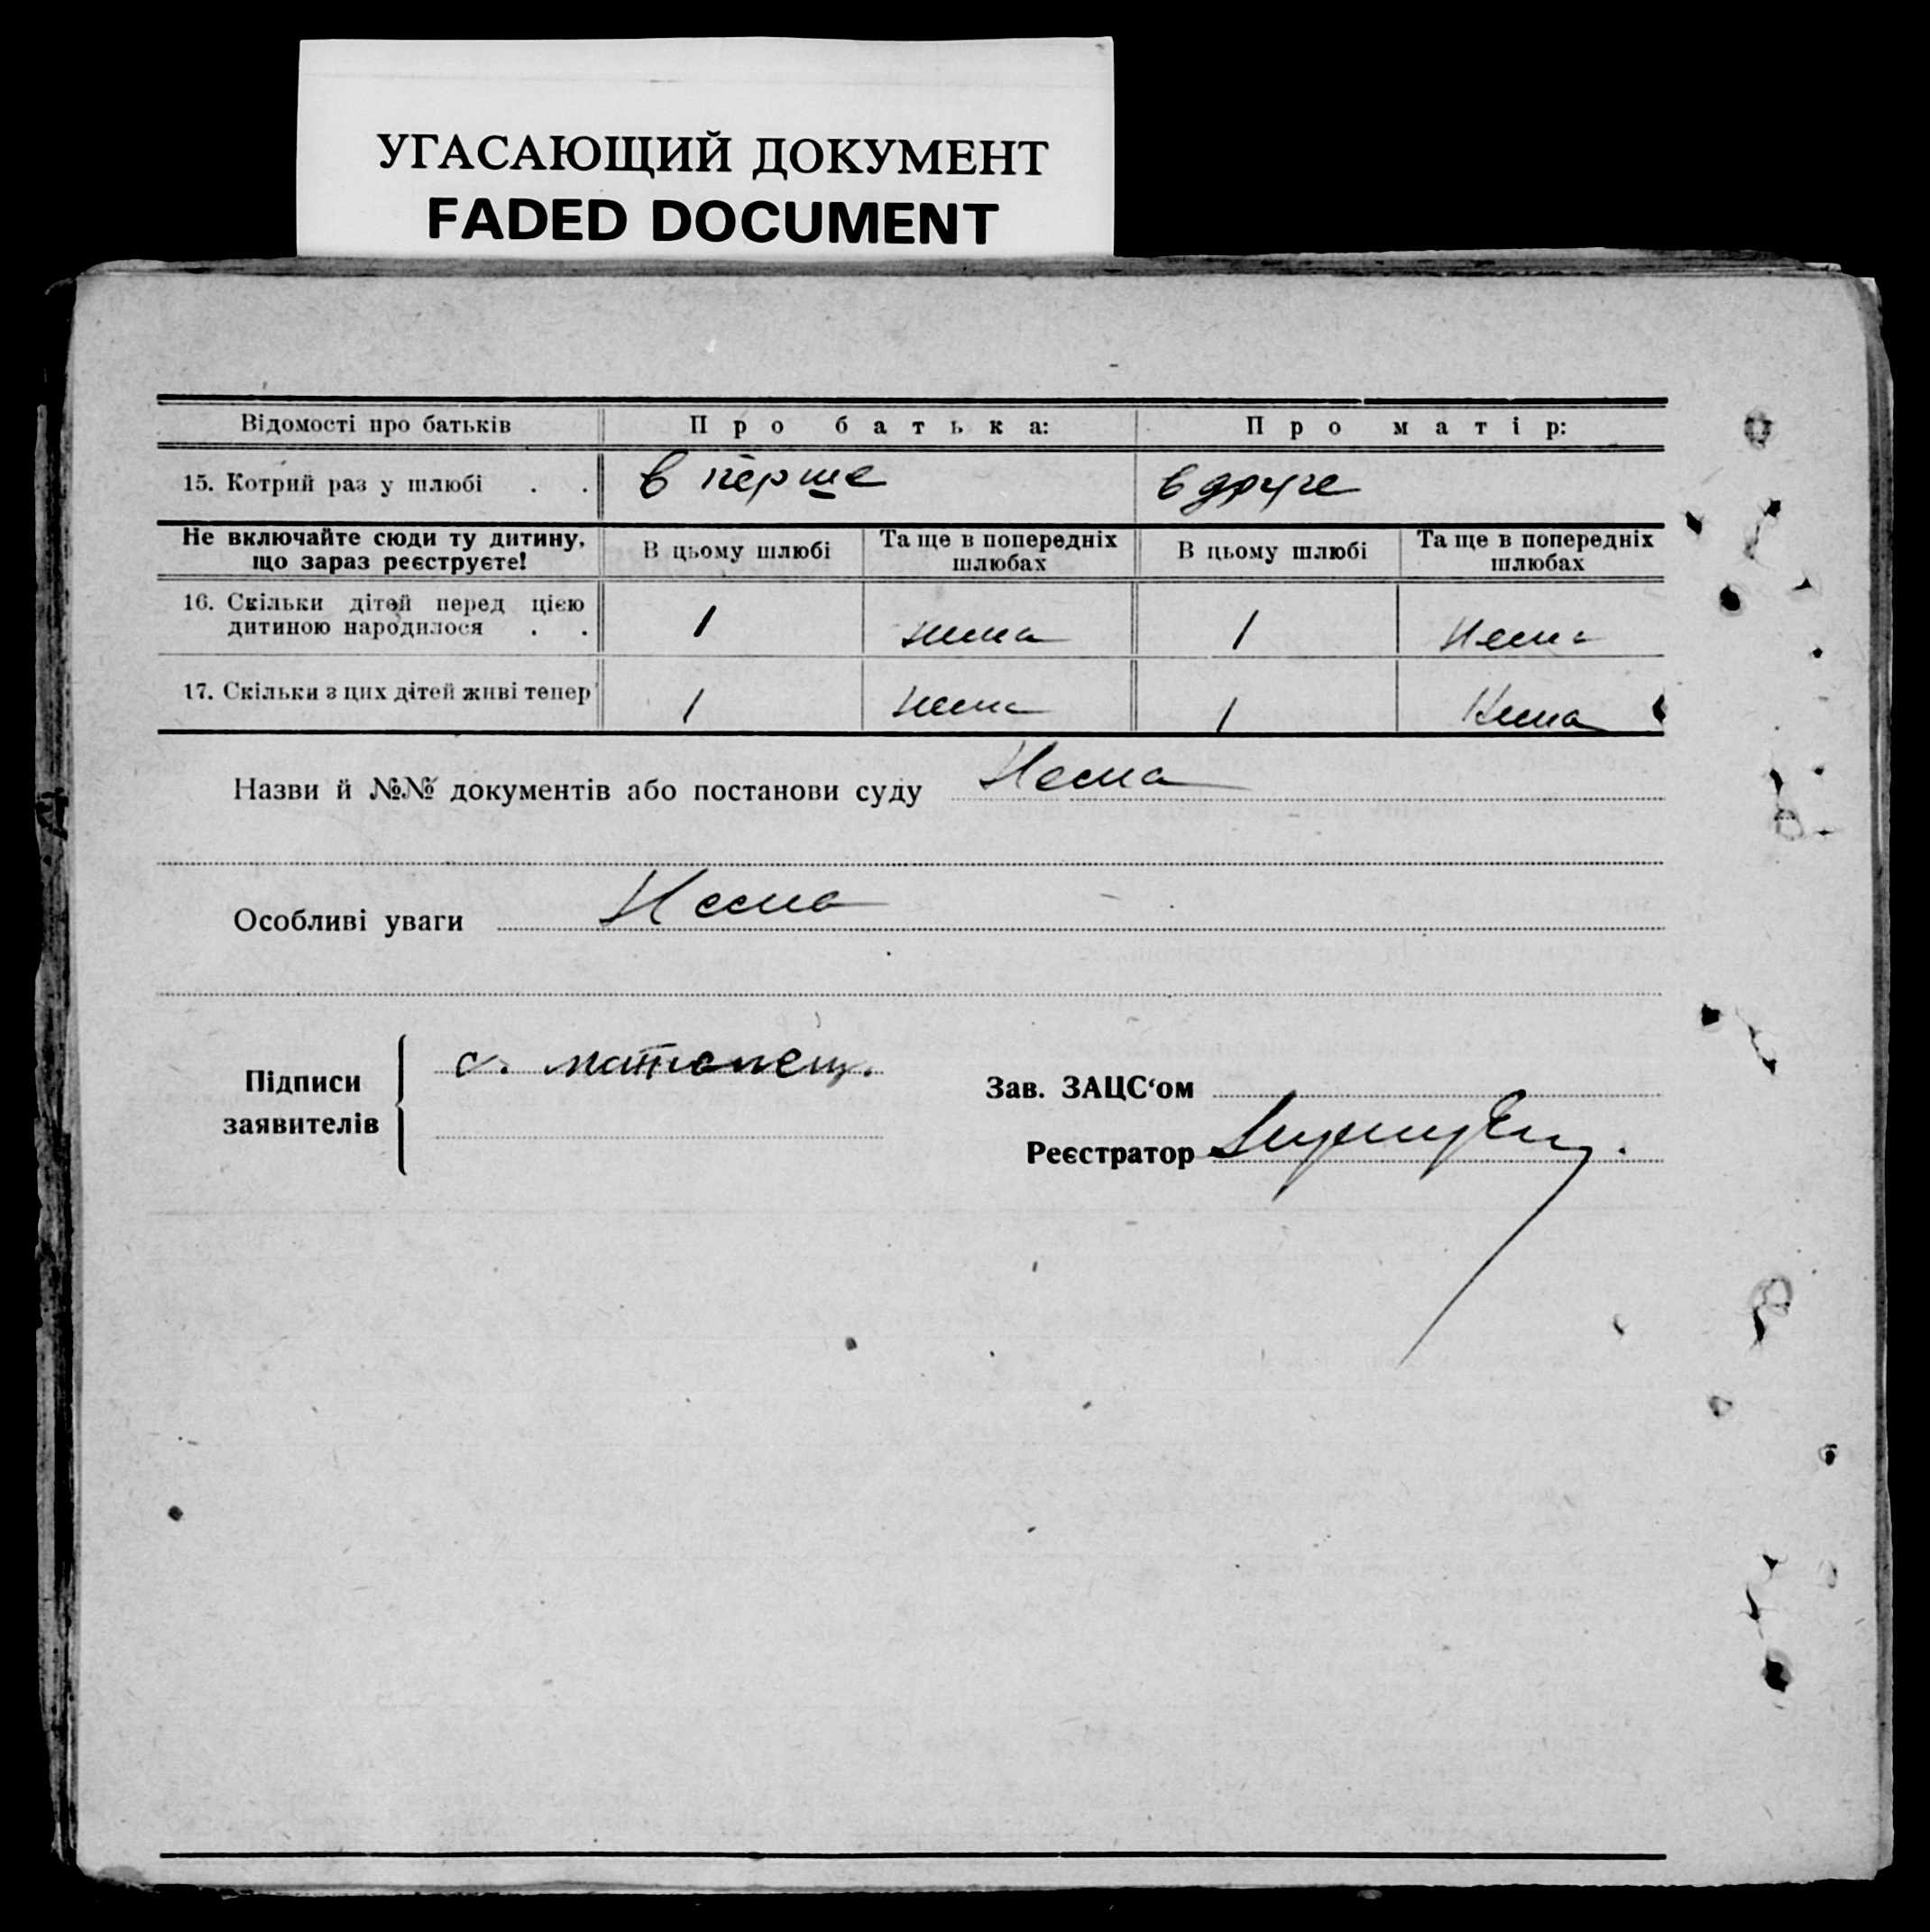 УГАСАЮЩИЙ ДОКУМЕНТ
FADED DOCUMENT
Відомості про батьків Про батька: Про матір:
15. Котрий раз у шлюбі . . в перше в друге
Не включайте сюди ту дитину, що зараз реєструєте! В цьому шлюбі Та ще в попередніх шлюбах В цьому шлюбі Та ще в попередніх шлюбах
16. Скільки дітей перед цією дитиною народилося . . 1 нема 1 Нема
17. Скільки з цих дітей живі тепер 1 нема 1 Нема
Назви й №№ документів або постанови суду Нема
Особливі уваги Нема
Підписи заявителів с.
Зав. ЗАЦС‘ом
Реєстратор